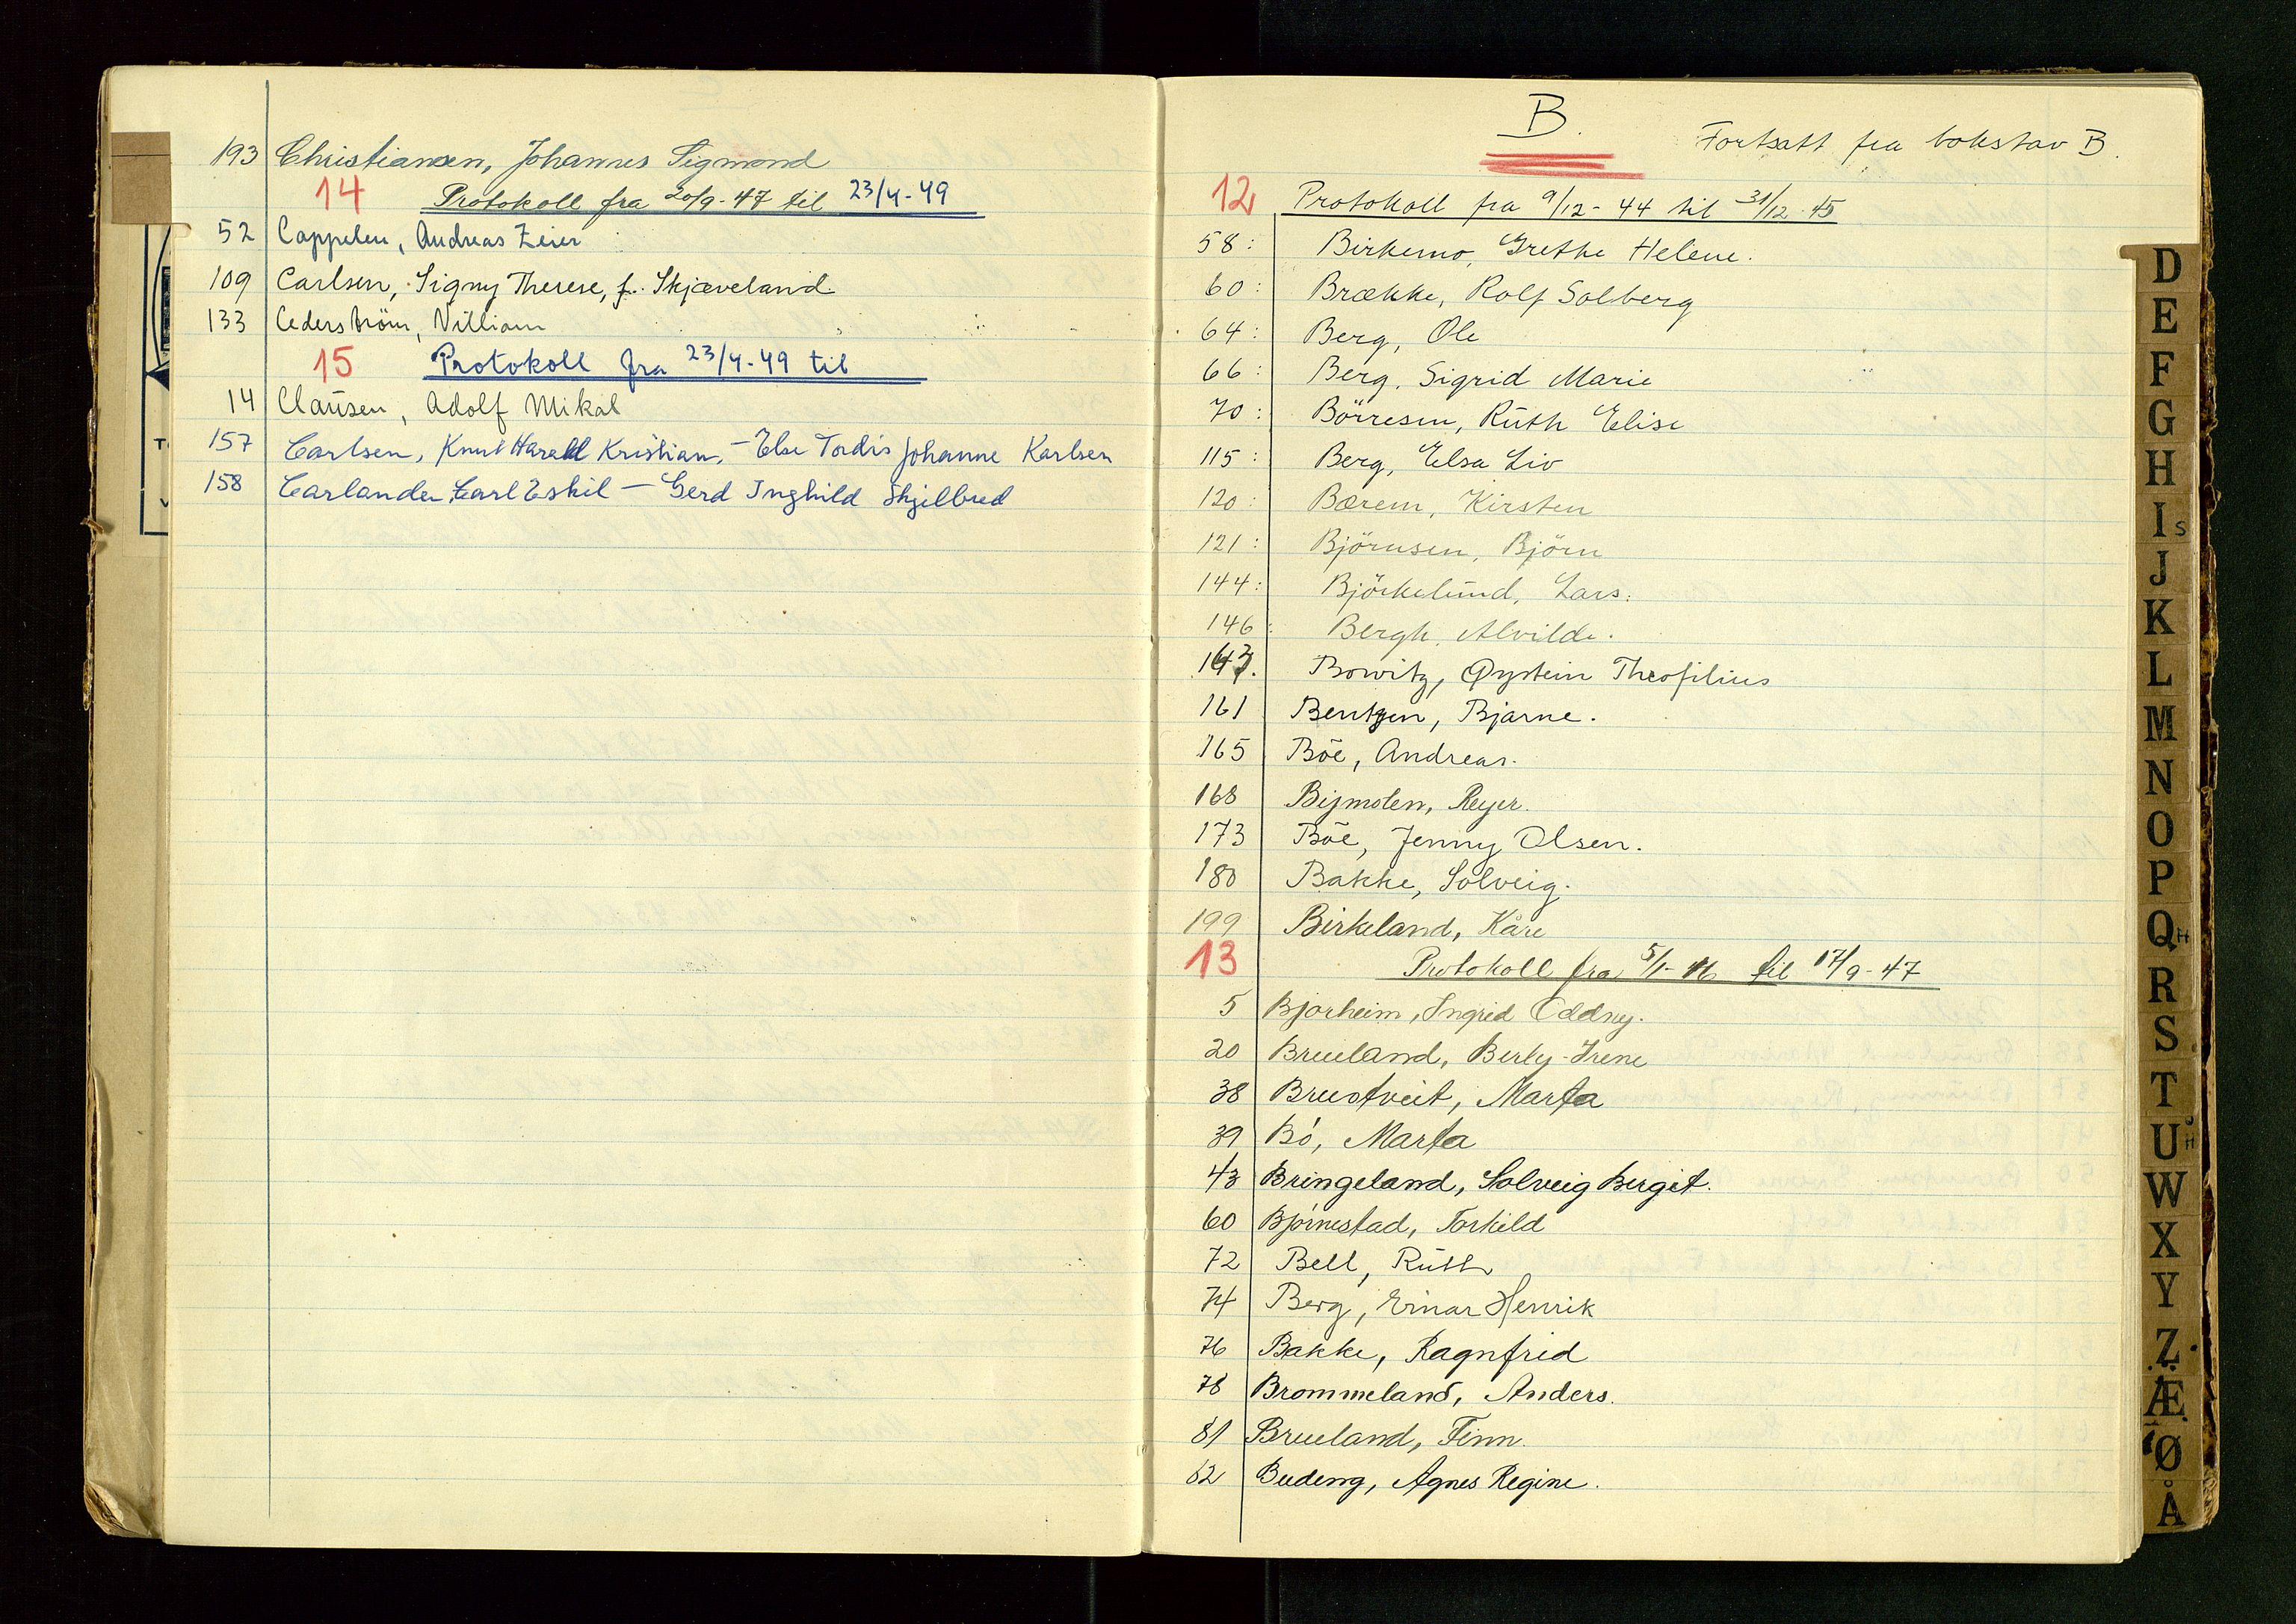 193 Christiansen, Johannes Sigmond
14 Protokoll fra 20/9-47 til 23/4-49
52 Cappelen, Andreas Zeier
109 Carlsen, Signy Therese, f. Skjæveland
133 Cederström, Villiam
15 Protokoll fra 23/4-49 til
14 Clausen, Adolf Mikal
157 Carlsen, Knut Harald Kristian. - Else Tordis Johanne Karlsen
158 Carlander Carl Eskil - Gerd Inghild Skjelbred
B.
Fortsatt fra bokstav B.
12 Protokoll fra 9/12-44 til 31/12-45
58: Birkemo, Grethe Helene.
60: Brække, Rolf Solberg
64: Berg, Ole
66: Berg, Sigrid Marie
70: Börresen, Ruth Elise
115: Berg, Elsa Liv
120: Bærem, Kirsten
121: Björnsen, Björn
144: Björkelund, Lars.
146: Bergh, Alvilde.
Bowitz, Øystein Theofilius
161 Bentzen, Bjarne.
165 Böe, Andreas.
168 Bijmolen, Reyer.
173 Böe, Jenny Olsen.
180 Bakke, Solveig.
199 Birkeland, Kåre
13 Protokoll fra 5/1-46 til 17/9-47
5 Bjorheim, Ingrid Oddny.
20 Brueland, Berly-Irene
38 Brustveit, Marta
39 Bö, Marta
43 Bringeland, Solveig Bergit.
60 Bjørnestad, Torkild
72 Bell, Ruth
74 Berg, Einar Henrik
76 Bakke, Ragnfrid
78 Brommeland, Anders.
81 Brueland, Finn.
82 Budeng, Agnes Regine.
D
E
F
G
H
I S
J
K
L
M
N
O
P
Q
R
S
T
U
W
X
Y
Z
Æ
Ø
Å